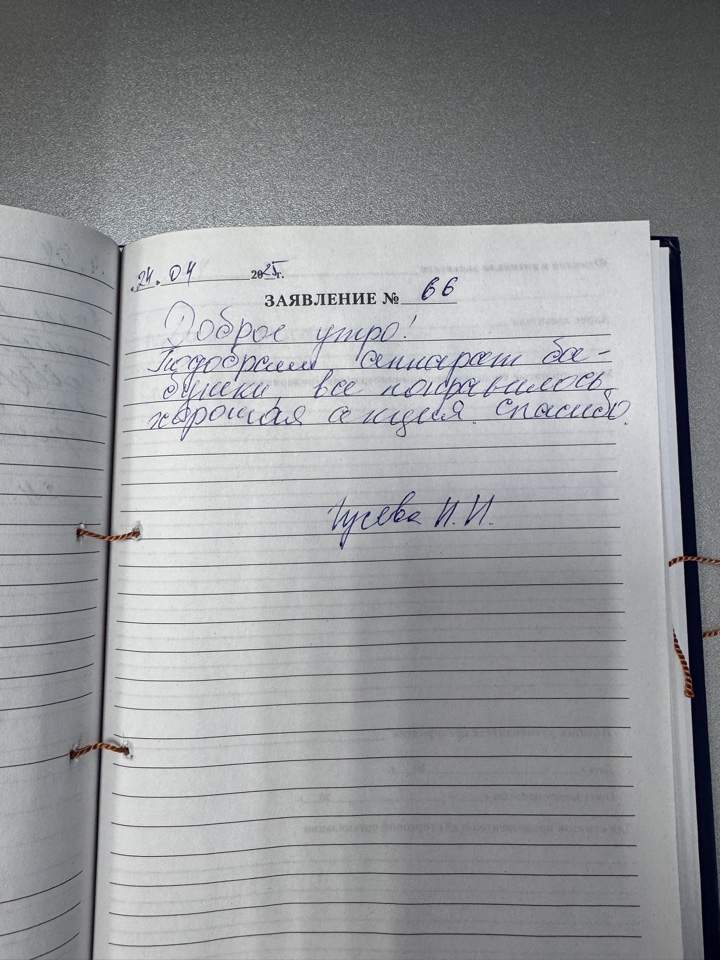 24.04 2025г.
ЗАЯВЛЕНИЕ № 66
Доброе утро!
Подобрали аппарат ба-
бушки, все понравилось,
хорошая акция. Спасибо.
Гусева Н.Н.